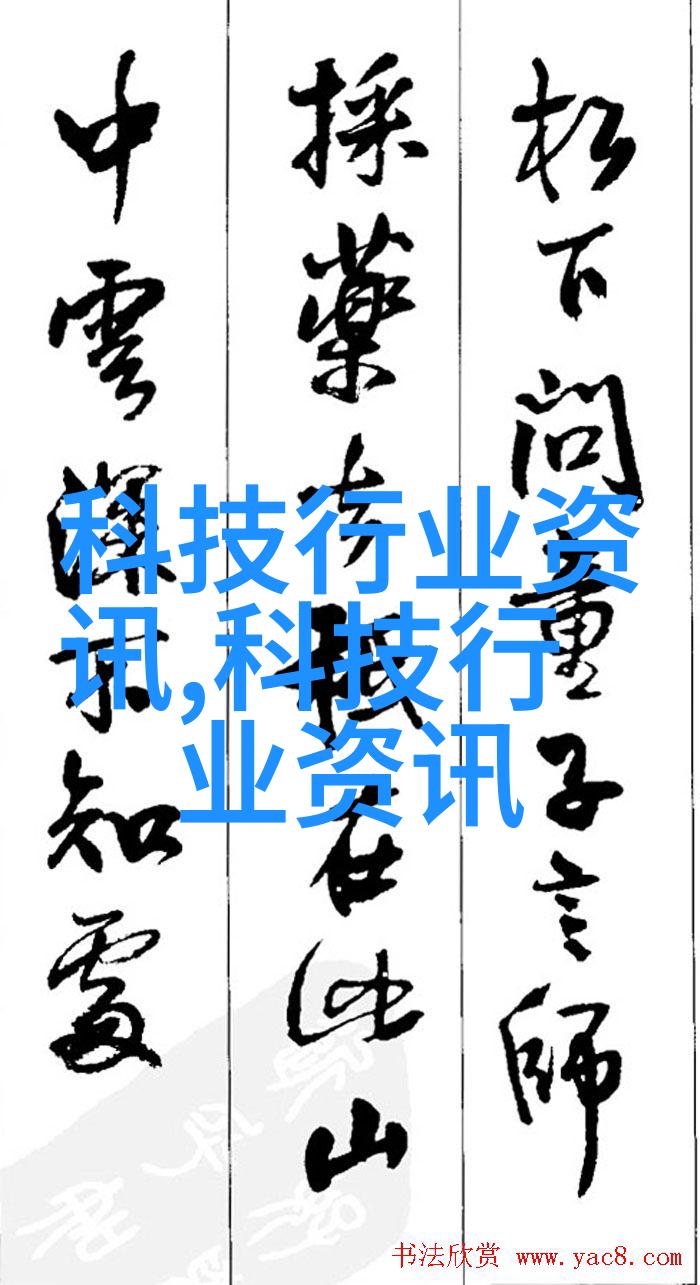 松下问童子言師
採藥去在此山
中雲深不知處
科技行业资
讯,科技行
业资讯
书法欣赏 www.yac8.com